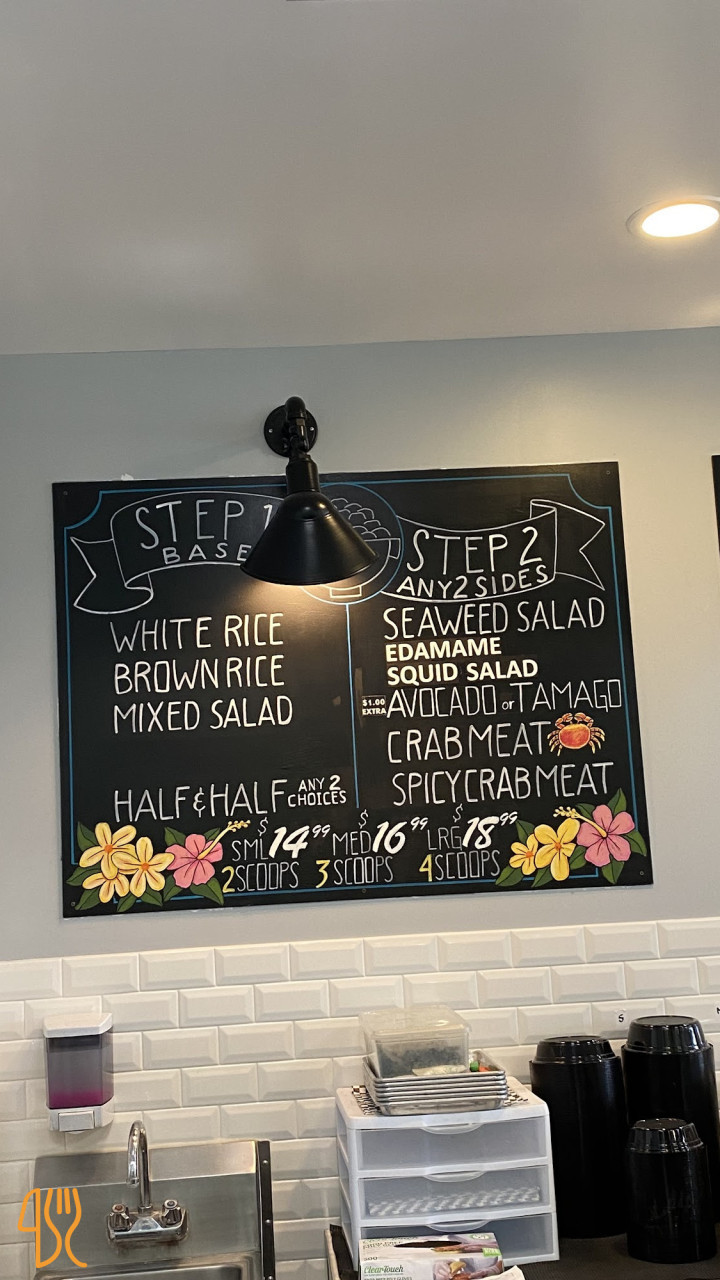 STEP 1
BASE
WHITE RICE
BROWN RICE
MIXED SALAD
HALF & HALF ANY 2 CHOICES
STEP 2
ANY 2 SIDES
SEAWEED SALAD
EDAMAME
SQUID SALAD
$1.00 EXTRA AVOCADO or TAMAGO
CRAB MEAT
SPICY CRAB MEAT
SML $14.99 MED $16.99 LRG $18.99
2 SCOOPS 3 SCOOPS 4 SCOOPS
S
ClearTouch